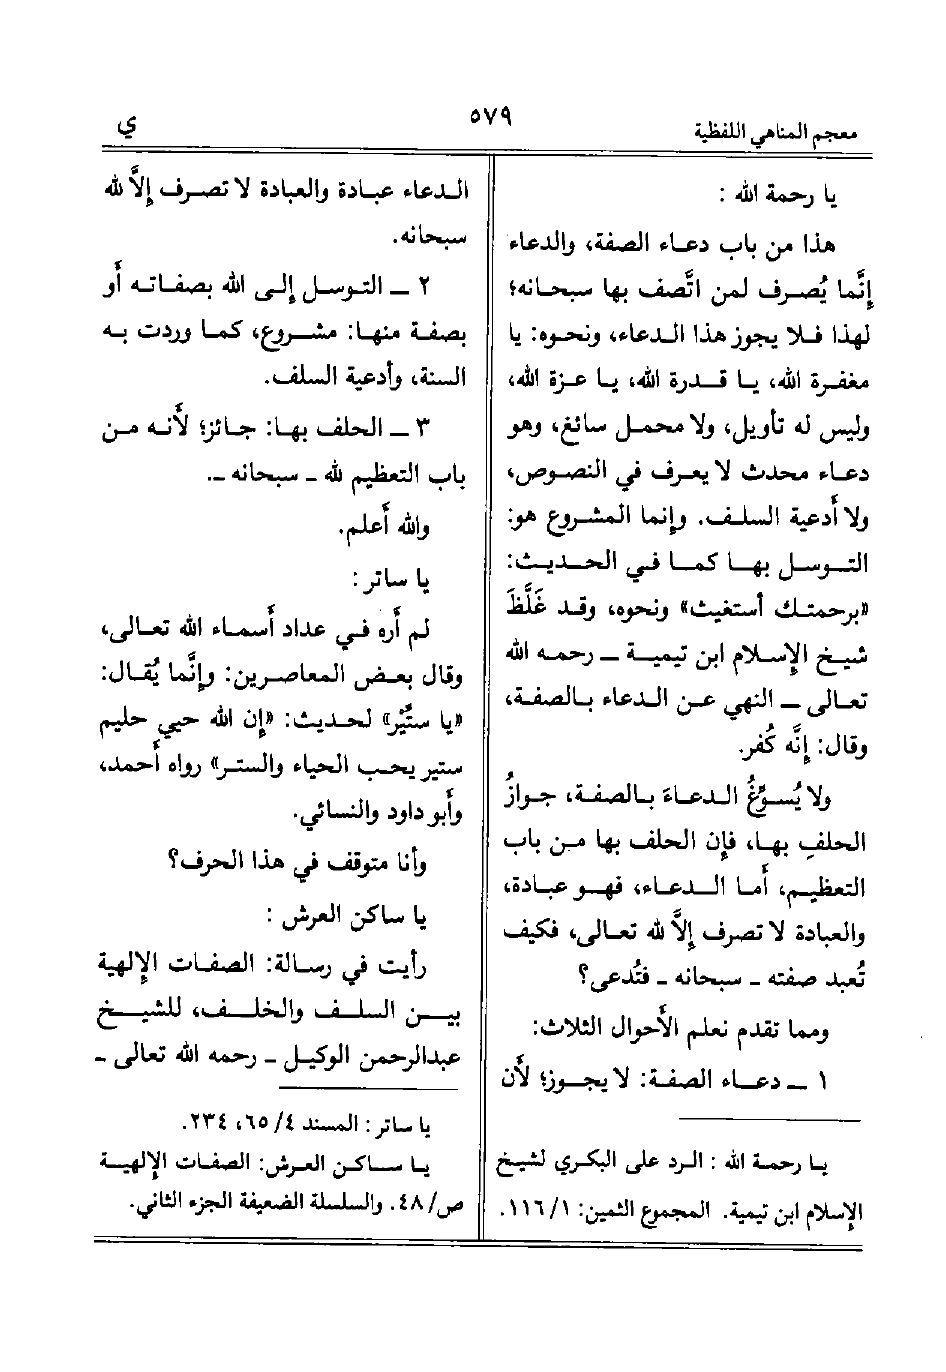 معجم المناهي اللفظية
٥٧٩
ي
يا رحمة الله :
هذا من باب دعاء الصفة، والدعاء
إنَّما يُصرف لمن اتَّصف بها سبحانه؛
لهذا فلا يجوز هذا الدعاء، ونحوه: يا
مغفرة الله، يا قدرة الله، يا عزة الله،
وليس له تأويل، ولا محمل سائغ، وهو
دعاء محدث لا يعرف في النصوص،
ولا أدعية السلف. وإنما المشروع هو:
التوسل بها كما في الحديث:
«برحمتك أستغيث» ونحوه، وقد غَلَّظَ
شيخ الإسلام ابن تيمية ــ رحمه الله
تعالى ــ النهي عن الدعاء بالصفة،
وقال: إنَّه كُفر.
ولا يُسوِّغُ الدعاءَ بالصفة، جوازُ
الحلفِ بها، فإن الحلف بها من باب
التعظيم، أما الدعاء، فهو عبادة،
والعبادة لا تصرف إلاَّ لله تعالى، فكيف
تُعبد صفته ـ سبحانه ـ فتُدعى؟
ومما تقدم نعلم الأحوال الثلاث:
١ ــ دعاء الصفة: لا يجوز؛ لأن
يا رحمة الله : الرد على البكري لشيخ
الإسلام ابن تيمية. المجموع الثمين: ١/ ١١٦.
الدعاء عبادة والعبادة لا تصرف إلاَّ لله
سبحانه.
٢ ــ التوسل إلى الله بصفاته أو
بصفة منها: مشروع، كما وردت به
السنة، وأدعية السلف.
٣ ــ الحلف بها: جائز؛ لأنه من
باب التعظيم لله ـ سبحانه ـ.
والله أعلم.
يا ساتر:
لم أره في عداد أسماء الله تعالى،
وقال بعض المعاصرين: وإنَّما يُقال:
«يا ستِّير» لحديث: «إن الله حيي حليم
ستير يحب الحياء والستر» رواه أحمد،
وأبو داود والنسائي.
وأنا متوقف في هذا الحرف؟
يا ساكن العرش :
رأيت في رسالة: الصفات الإلهية
بين السلف والخلف، للشيخ
عبدالرحمن الوكيل ـ رحمه الله تعالى ـ
يا ساتر: المسند ٤/ ٦٥، ٢٣٤.
يا ساكن العرش: الصفات الإلهية
ص/ ٤٨. والسلسلة الضعيفة الجزء الثاني.